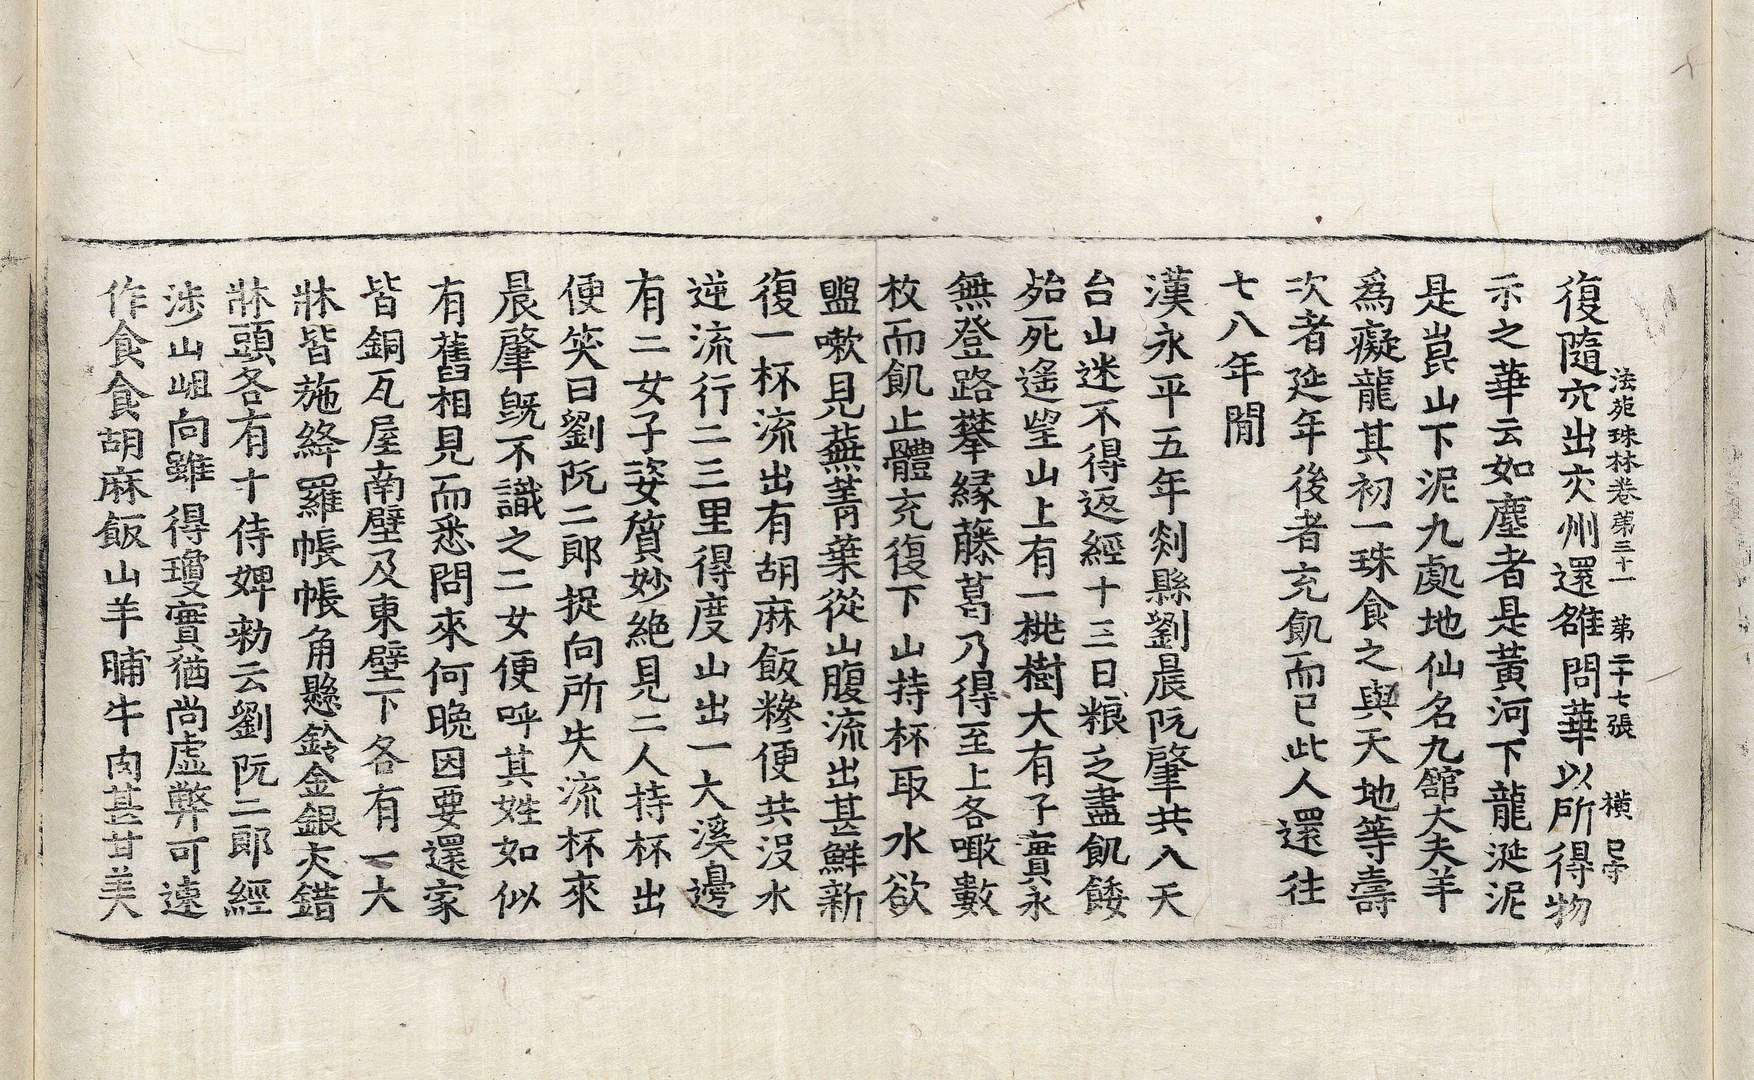 法苑珠林卷第三十一 第二十七張 橫
復隨穴出交州還雒問華以所得物
示之華云如塵者是黃河下龍涎泥
是崑山下泥九處地仙名九舘大夫羊
爲癡龍其初一珠食之與天地等壽
次者延年後者充飢而已此人還往
七八年閒
漢永平五年剡縣劉晨阮肇共入天
台山迷不得返經十三日粮乏盡飢餧
殆死遙望山上有一桃樹大有子實永
無登路攀緣藤葛乃得至上各噉數
枚而飢止體充復下山持杯取水欲
盥嗽見蕪菁葉從山腹流出甚鮮新
復一杯流出有胡麻飯糝便共沒水
逆流行二三里得度山出一大溪邊
有二女子姿質妙絕見二人持杯出
便笑曰劉阮二郎捉向所失流杯來
晨肇旣不識之二女便呼其姓如似
有舊相見而悉問來何晚因要還家
皆銅瓦屋南壁及東壁下各有一大
牀皆施絳羅帳帳角懸鈴金銀交錯
牀頭各有十侍婢勑云劉阮二郎經
涉山岨向雖得瓊實猶尚虛弊可速
作食食胡麻飯山羊脯牛肉甚甘美